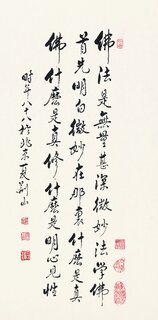 佛法是無豐甚深微妙法學佛
首先明白微妙在那裏什麽是真
佛什麽是真修什麽是明心見性
時年八十八於北京夏荆山